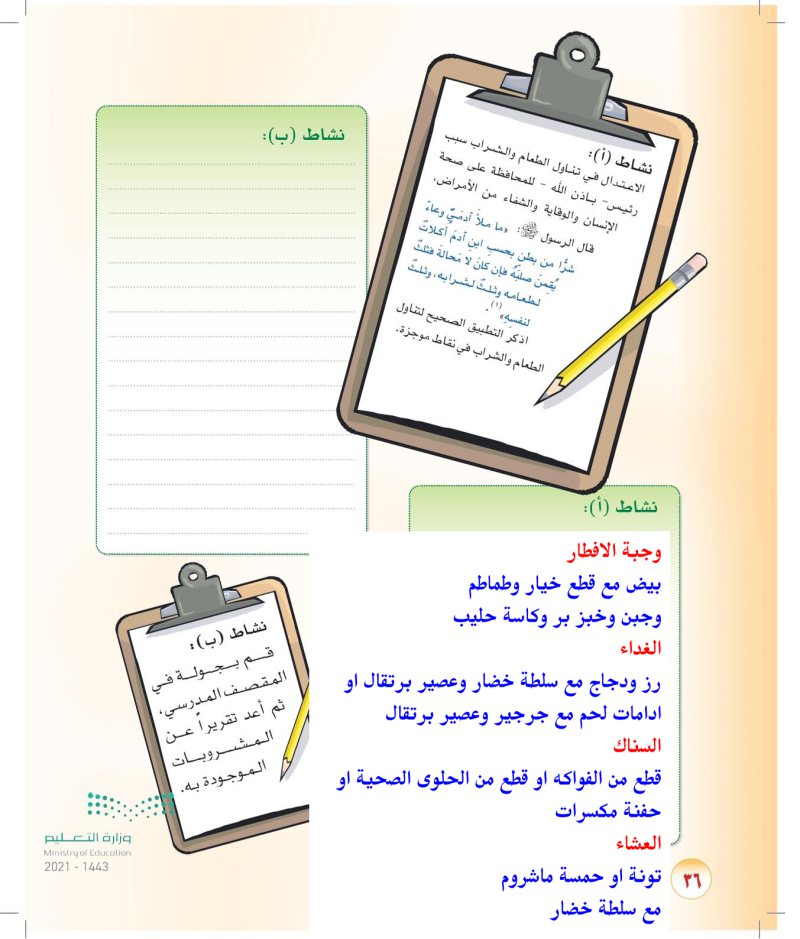 نشاط (أ):
الاعتدال في تناول الطعام والشراب سبب
رئيس- بإذن الله - للمحافظة على صحة
الإنسان والوقاية والشفاء من الأمراض،
قال الرسول ﷺ: «ما ملأَ آدمَيٌّ وعاءً
شرًّا من بطن بحسبِ ابنِ آدمَ أكلاتٌ
يُقِمنَ صلبَهُ فإن كانَ لا مَحالةَ فثلثٌ
لطعامه وثلثٌ لشرابه، وثلثٌ
لنفسِهِ»(١).
اذكر التطبيق الصحيح لتناول
الطعام والشراب في نقاط موجزة.
نشاط (ب):
نشاط (أ):
وجبة الافطار
بيض مع قطع خيار وطماطم
وجبن وخبز بر وكاسة حليب
الغداء
رز ودجاج مع سلطة خضار وعصير برتقال او
ادامات لحم مع جرجير وعصير برتقال
السناك
قطع من الفواكه او قطع من الحلوى الصحية او
حفنة مكسرات
العشاء
تونة او حمسة ماشروم
مع سلطة خضار
نشاط (ب):
قم بجولة في
المقصف المدرسي،
ثم أعد تقريراً عن
المشروبات
الموجودة به.
وزارة التعليم
Ministry of Education
2021 - 1443
٣٦